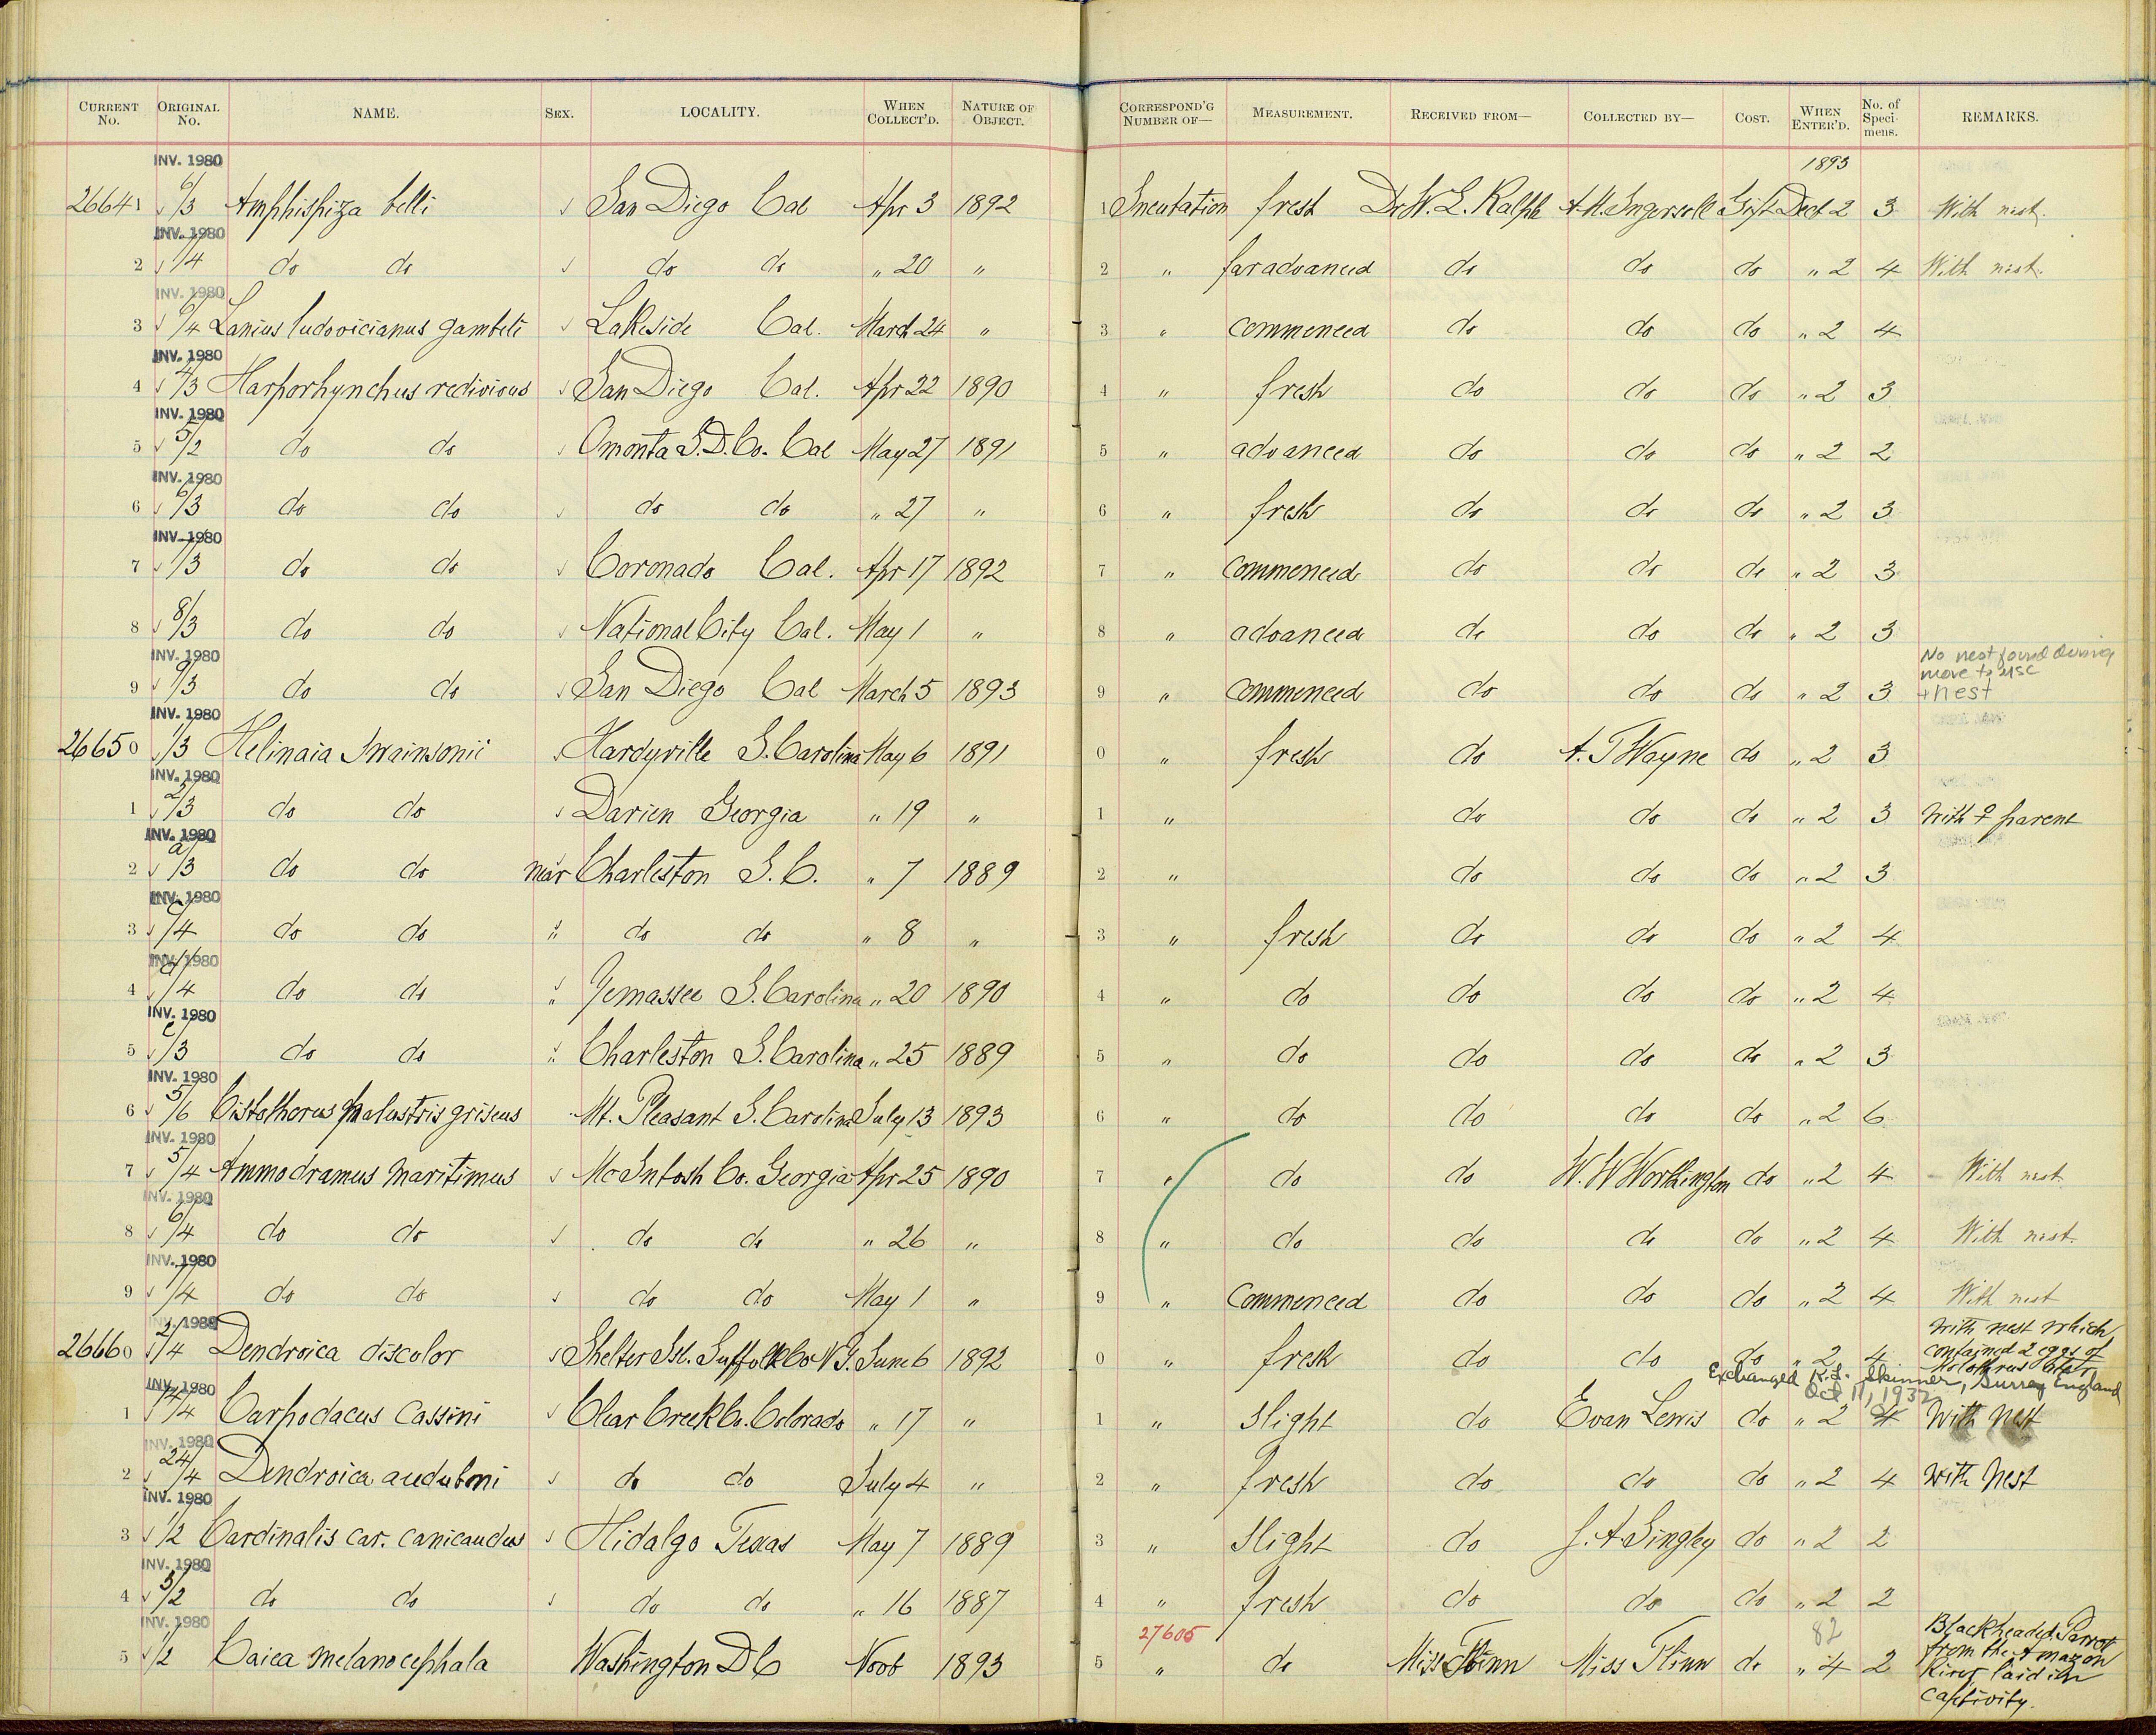 CURRENT No. ORIGINAL No. NAME. SEX. LOCALITY. WHEN COLLECT'D. NATURE OF OBJECT. CORRESPOND'G NUMBER OF— MEASUREMENT. RECEIVED FROM— COLLECTED BY— COST. WHEN ENTER'D. No. of Speci-mens. REMARKS.
INV. 1980 1893
26641 6/3 Amphispiza belli San Diego Cal Apr 3 1892 1 Incubation fresh Dr W. L. Ralph A. M. Ingersoll Gift Dec 2 3 With nest.
INV. 1980
2 7/4 do do do do " 20 " 2 " far advanced do do do " 2 4 With nest.
INV. 1980
3 6/4 Lanius ludovicianus gambeli Lakeside Cal. March 24 " 3 " commenced do do do " 2 4
INV. 1980
4 4/3 Harporhynchus redivivus San Diego Cal. Apr 22 1890 4 " fresh do do do " 2 3
INV. 1980
5 5/2 do do Omonta S.D. Co. Cal May 27 1891 5 " advanced do do do " 2 2
INV. 1980
6 6/3 do do do do " 27 " 6 " fresh do do do " 2 3
INV. 1980
7 7/3 do do Coronado Cal. Apr 17 1892 7 " commenced do do do " 2 3
8 8/3 do do National City Cal. May 1 " 8 " advanced do do do " 2 3
INV. 1980 No nest found during move to MSC
9 9/3 do do San Diego Cal March 5 1893 9 " commenced do do do " 2 3 + nest
INV. 1980
26650 1/3 Helinaia Swainsonii Hardyville S. Carolina May 6 1891 0 " fresh do A. T Wayne do " 2 3
INV. 1980
1 2/3 do do Darien Georgia " 19 " 1 " do do do " 2 3 With ♀ parent
INV. 1980
2 a/3 do do near Charleston S. C. " 7 1889 2 " do do do " 2 3
INV. 1980
3 c/4 do do " do do " 8 " 3 " fresh do do do " 2 4
INV. 1980
4 d/4 do do " Yemassee S. Carolina " 20 1890 4 " do do do do " 2 4
INV. 1980
5 e/3 do do " Charleston S. Carolina " 25 1889 5 " do do do do " 2 3
INV. 1980
6 5/6 Cistothorus palustris griseus Mt. Pleasant S. Carolina July 13 1893 6 " do do do do " 2 6
INV. 1980
7 5/4 Ammodramus maritimus McIntosh Co. Georgia Apr 25 1890 7 " do do W. W Worthington do " 2 4 With nest
INV. 1980
8 6/4 do do do do " 26 " 8 " do do do do " 2 4 With nest.
INV. 1980
9 7/4 do do do do May 1 " 9 " Commenced do do do " 2 4 With nest
INV. 1980
26660 2/4 Dendroica discolor Shelter Isl. Suffolk Co N Y. June 6 1892 0 " fresh do do do " 2 4 With nest which contained 2 eggs of Molothrus ater
Exchanged K.L. Skinner, Surrey England Oct 11, 1932
INV. 1980
1 14/4 Carpodacus Cassini Clear Creek Co. Colorado " 17 " 1 " Slight do Evan Lewis do " 2 4 With Nest
INV. 1980
2 24/4 Dendroica auduboni do do July 4 " 2 " fresh do do do " 2 4 With Nest
INV. 1980
3 1/2 Cardinalis car. canicaudus Hidalgo Texas May 7 1889 3 " Slight do J. A Singley do " 2 2
INV. 1980
4 3/2 do do do do " 16 1887 4 " fresh do do do " 2 2
INV. 1980 27605 82
5 1/2 Caica melanocephala Washington D C Nov 1893 5 " do Miss Flinn Miss Flinn do " 4 2 Blackheaded Parrot from the Amazon River, laid in captivity.